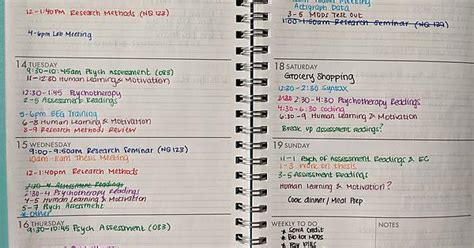 12-1:40PM Research Methods (NQ 123)
4-6pm Lab Meeting
14 TUESDAY
9:30-10:45am Psych Assessment (083)
11-12:30 Human Learning & Motivation
12:30-1:45 Psychotherapy
2-5 Assessment Readings
5-6pm EEG Training
6-8 Human Learning & Motivation
8-9 Research Methods Review
15 WEDNESDAY
9:00-9:50am Research Seminar (NQ 123)
10am-11am Thesis Meeting
12-1:40PM Research Methods
2:30-4 Assessment Readings
2:30-4 Psychotherapy Readings
4-5 Human Learning & Motivation
5-7 Psych Assessment
* Other
16 THURSDAY
9:30-10:45am Psych Assessment (083)
Meeting
Actigraph Data
3-5 MDPP Test Out
1:00-1:50PM Research Seminar (NQ 123)
18 SATURDAY
Grocery Shopping
12:30-2:30 Syntax
2:30-4:30 Psychotherapy Readings
4:30-6:30 coding
6-9 Human Learning & Motivation
Break up assessment readings?
19 SUNDAY
11-1 Psych of Assessment Readings & EC
1-3 Thesis
3-5 Assessment Readings
Human Learning & Motivation?
Cook dinner / Meal Prep
WEEKLY TO DO
NOTES
* Sona Credit
* Bio for MDPP
* Pay